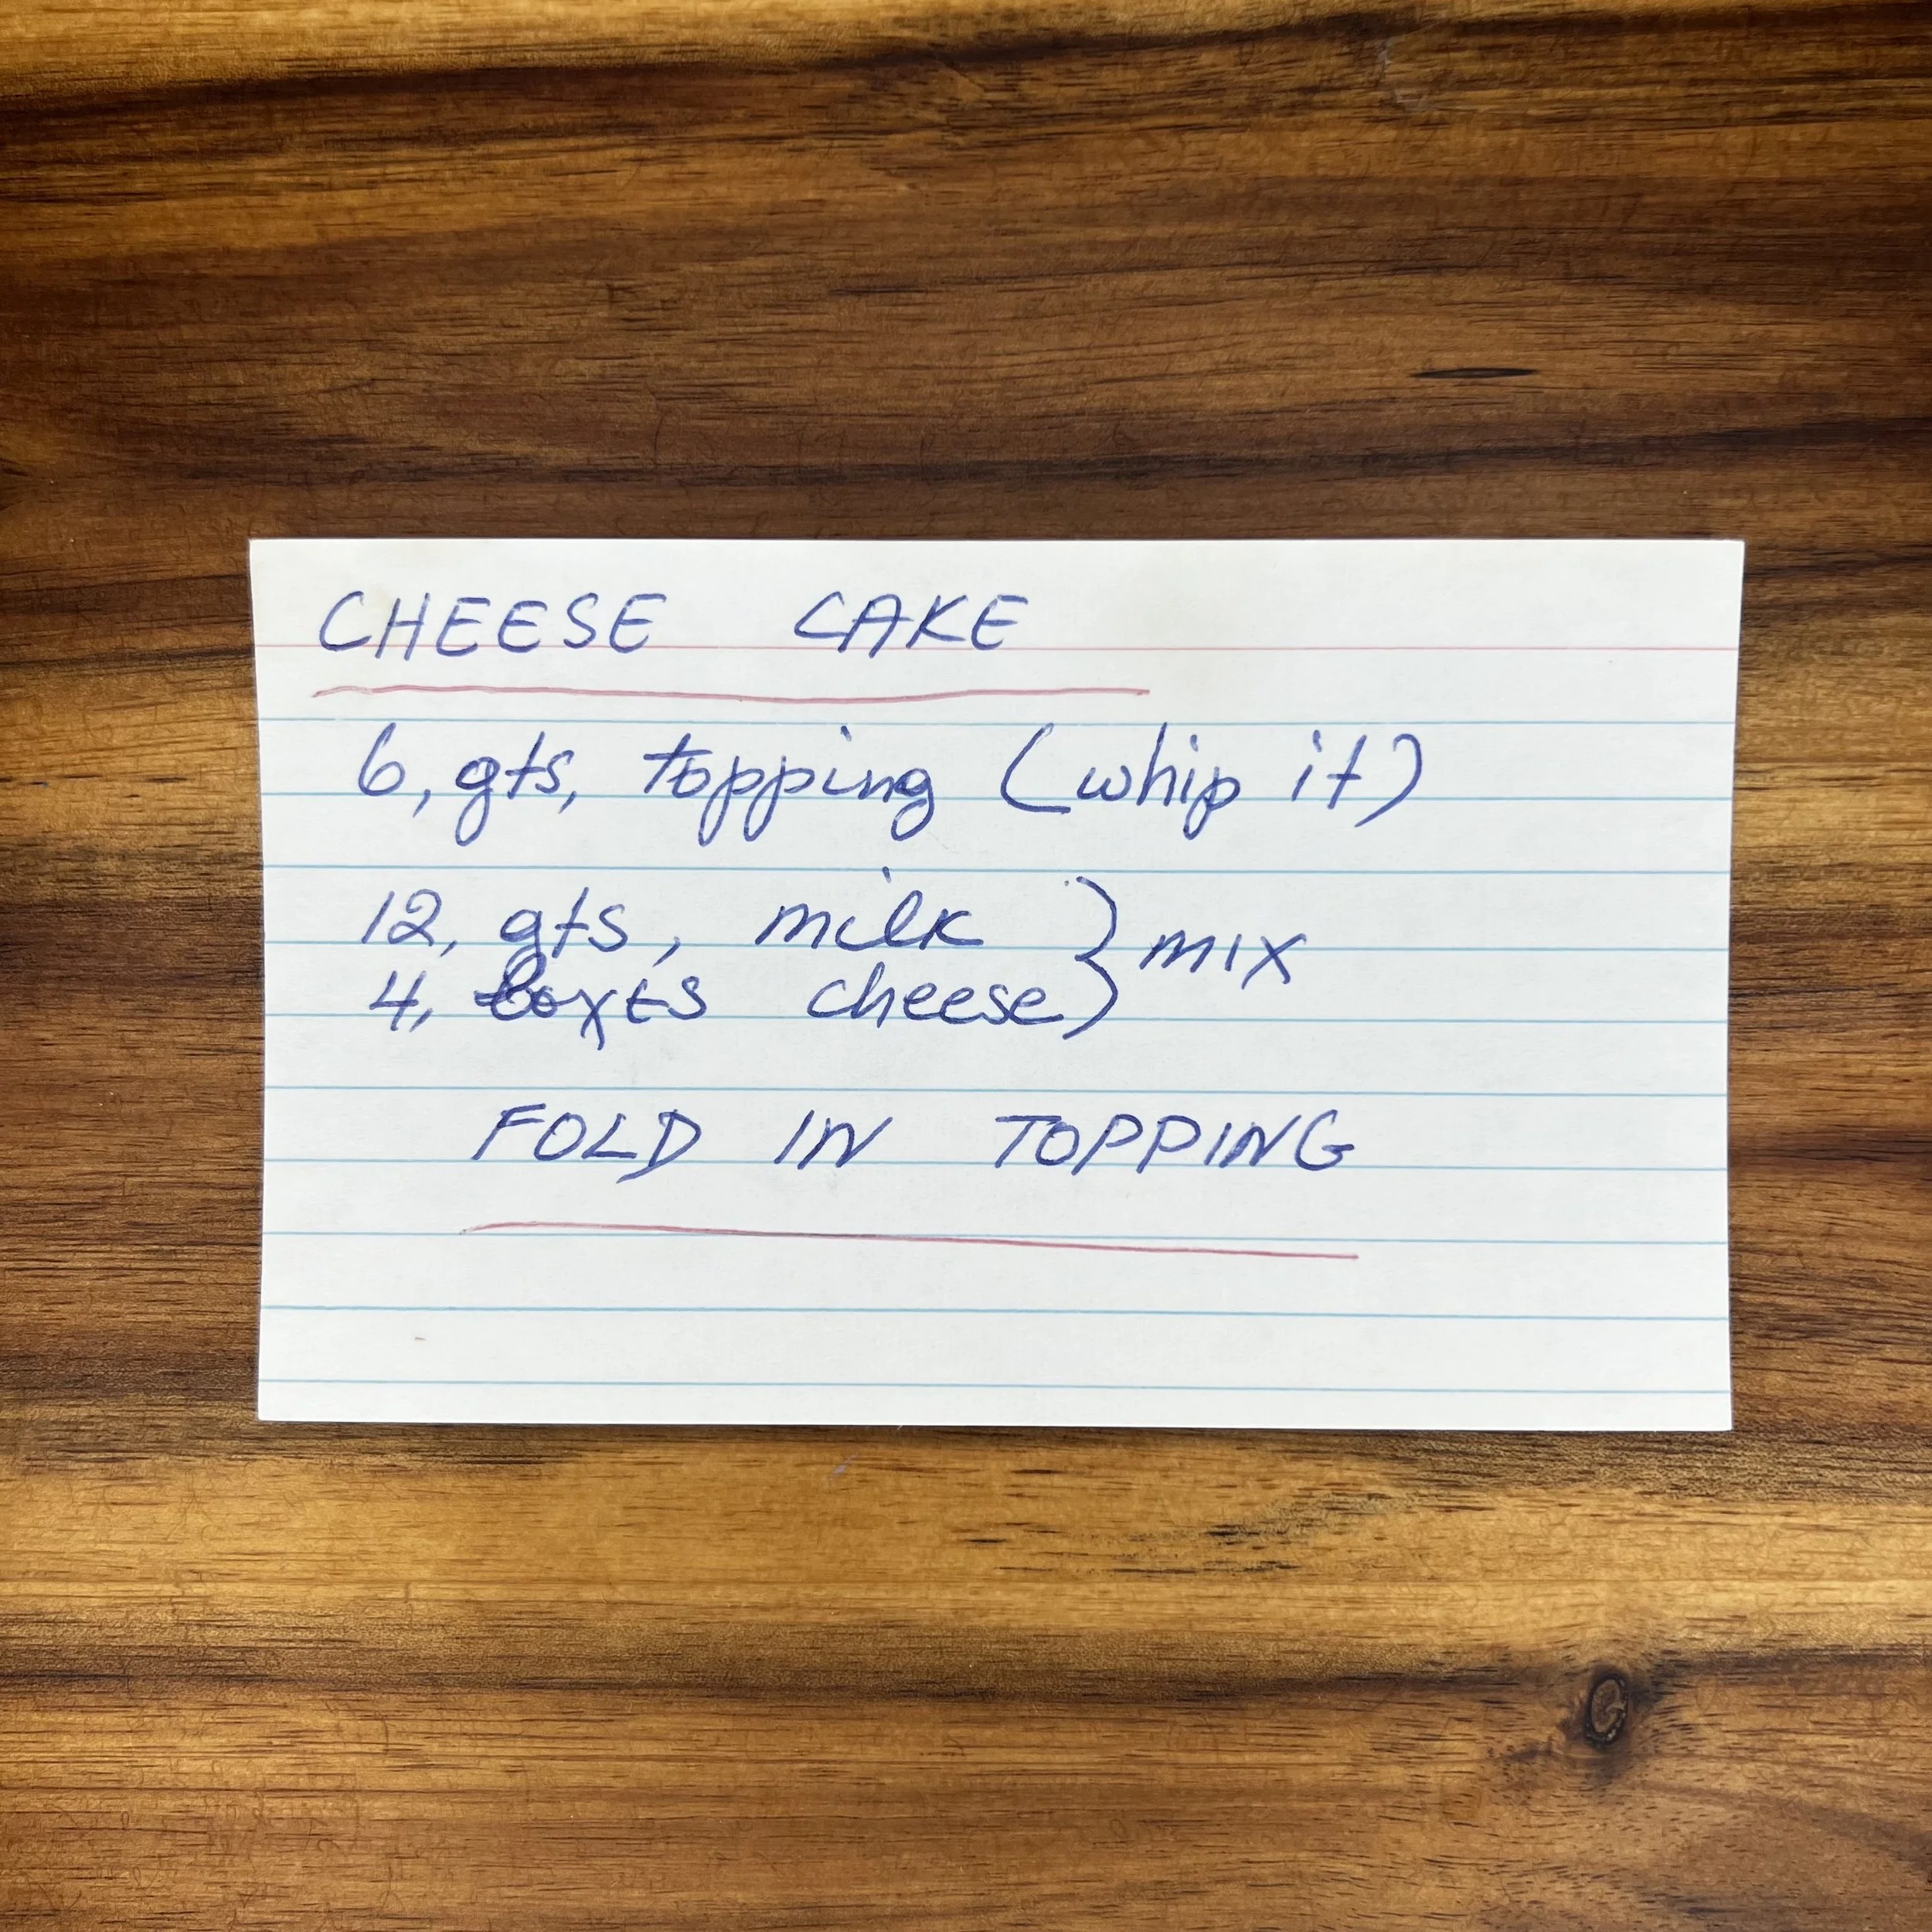 CHEESE CAKE
6, qts, topping (whip it)
12, qts, milk } mix
4, boxes cheese
FOLD IN TOPPING